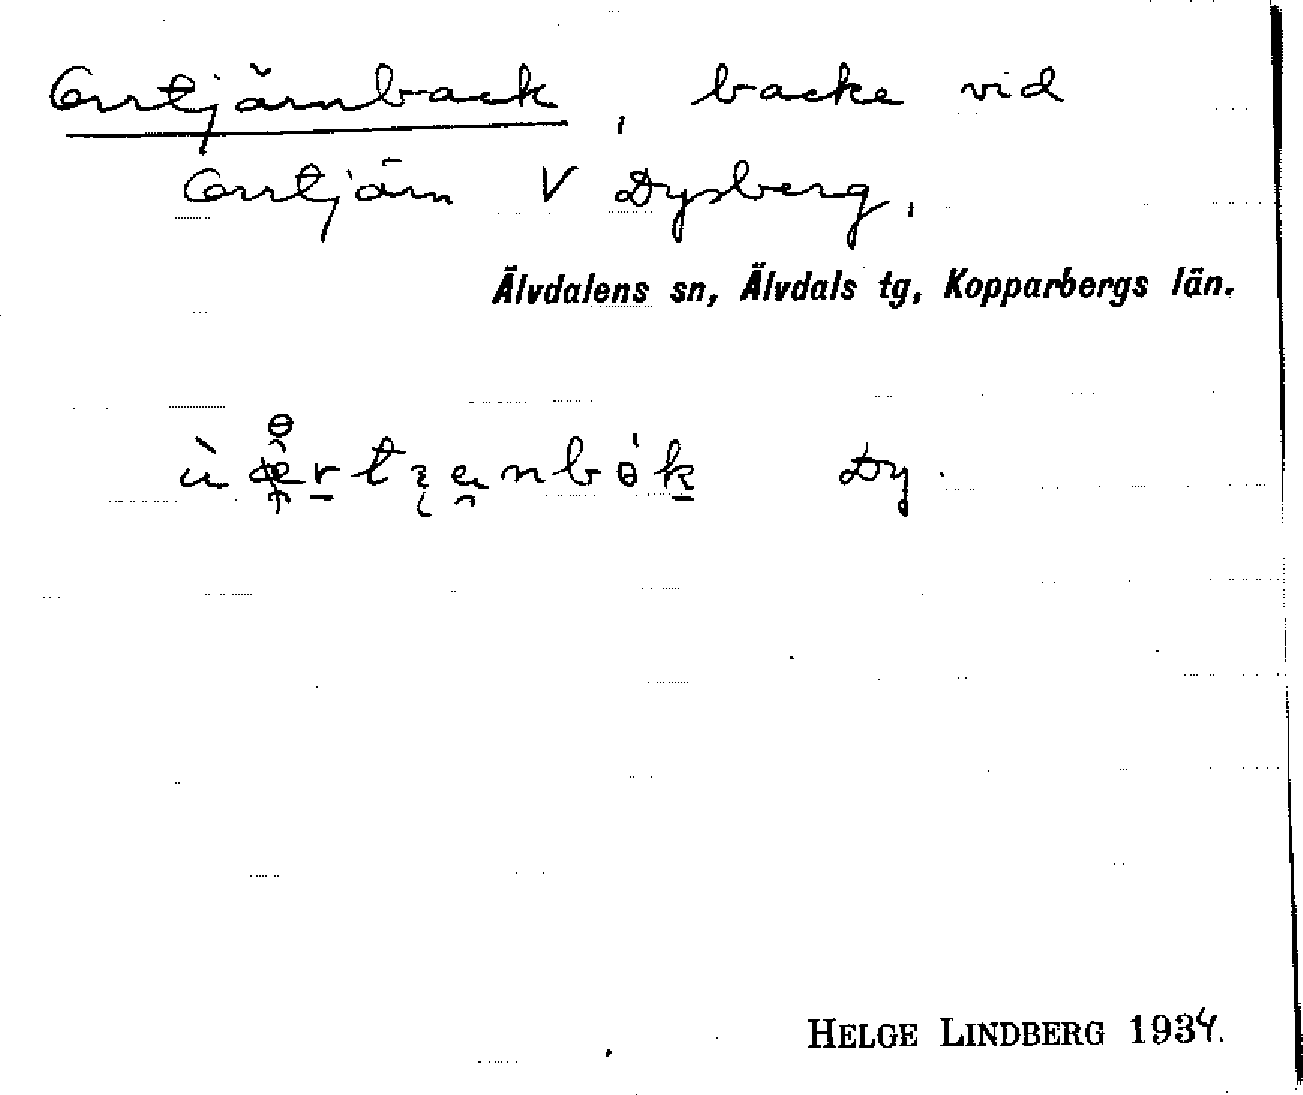 Orrtjärnback, backe vid
Orrtjärn V Dysberg,
Älvdalens sn, Älvdals tg, Kopparbergs län.
Dy.
HELGE LINDBERG 1934.